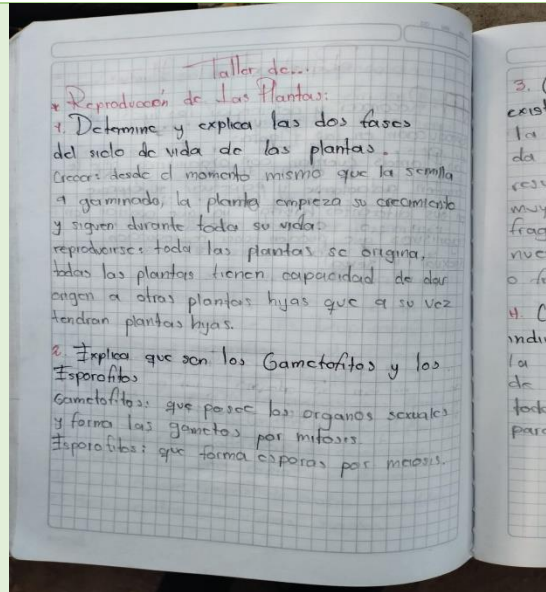 Taller de...
* Reproducción de las Plantas:
1. Determine y explica las dos fases
del siclo de vida de las plantas.
Crecer: desde el momento mismo que la semilla
a gaminado, la planta empieza su crecimiento
y siguen durante toda su vida.
reproducirse: toda las plantas se origina,
todas las plantas tienen capacidad de dar
origen a otras plantas hijas que a su vez
tendran plantas hijas.
2. Explica que son los Gametofitos y los
Esporofitos
Gametofitos: que posee los organos sexuales
y forma las gametos por mitosis.
Esporofitos: que forma esporas por meiosis.
3. 
exist
la
da
resu
muy
frag
nue
4. C
indi
la
de
toda
para